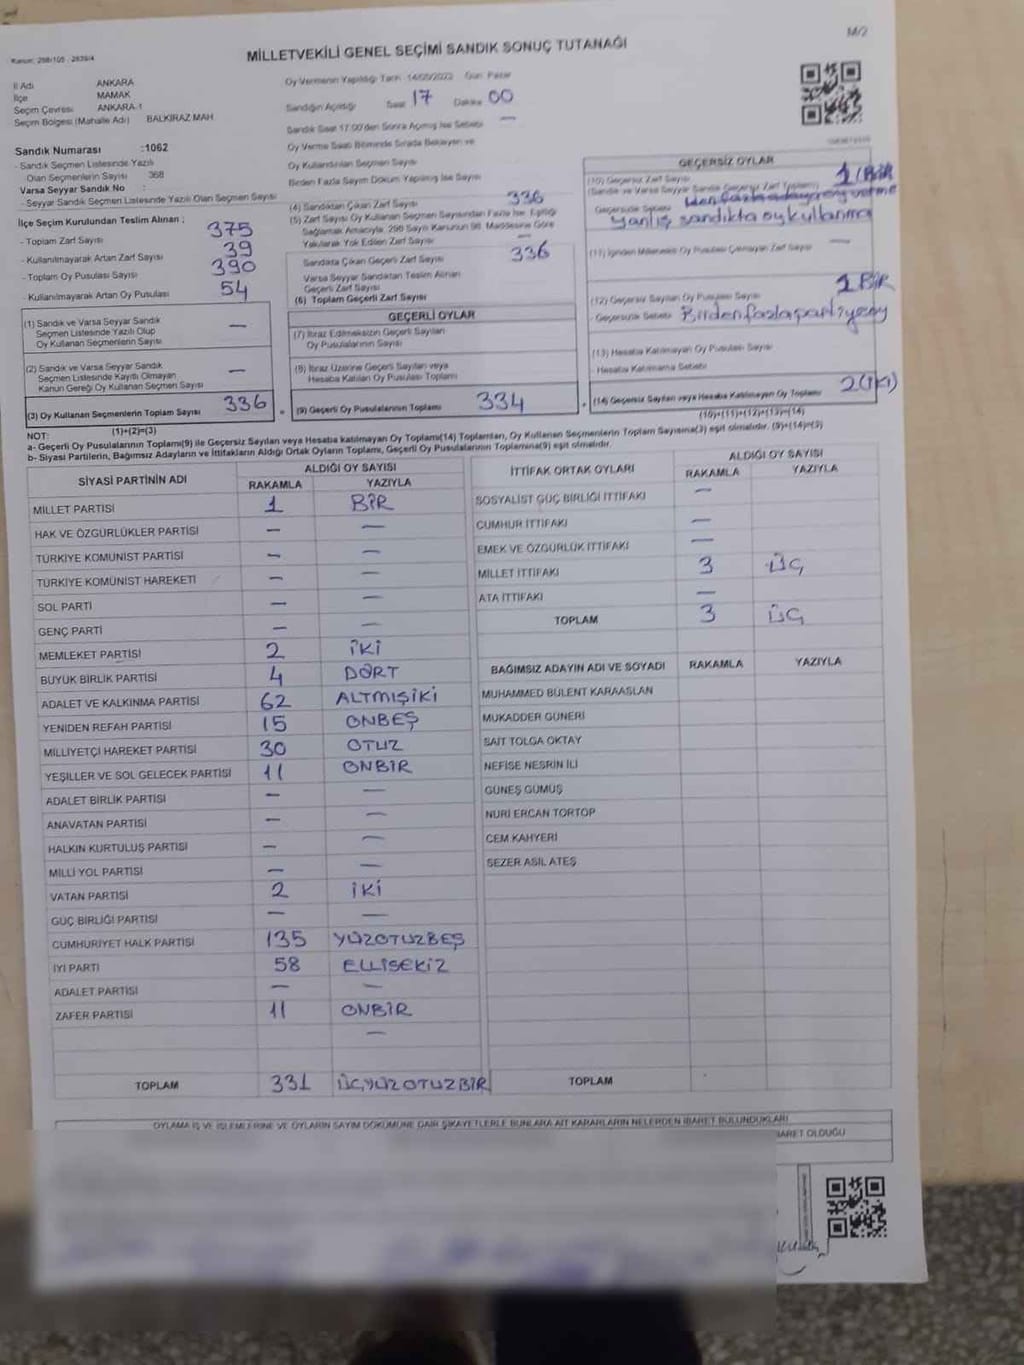 M/2
Kanun: 298/105 - 2839/4
MİLLETVEKİLİ GENEL SEÇİMİ SANDIK SONUÇ TUTANAĞI
İl Adı ANKARA
İlçe MAMAK
Seçim Çevresi ANKARA-1
Seçim Bölgesi (Mahalle Adı) BALKİRAZ MAH.
Sandık Numarası :1062
- Sandık Seçmen Listesinde Yazılı
Olan Seçmenlerin Sayısı 368
Varsa Seyyar Sandık No :
- Seyyar Sandık Seçmen Listesinde Yazılı Olan Seçmen Sayısı
İlçe Seçim Kurulundan Teslim Alınan ;
- Toplam Zarf Sayısı 375
- Kullanılmayarak Artan Zarf Sayısı 39
- Toplam Oy Pusulası Sayısı 390
- Kullanılmayarak Artan Oy Pusulası 54
(1) Sandık ve Varsa Seyyar Sandık
Seçmen Listesinde Yazılı Olup
Oy Kullanan Seçmenlerin Sayısı —
(2) Sandık ve Varsa Seyyar Sandık
Seçmen Listesinde Kayıtlı Olmayan
Kanun Gereği Oy Kullanan Seçmen Sayısı —
(3) Oy Kullanan Seçmenlerin Toplam Sayısı 336
(1)+(2)=(3)
Oy Vermenin Yapıldığı Tarih : 14/05/2023 Gün: Pazar
Sandığın Açıldığı Saat 17 Dakika 00
Sandık Saat 17.00'den Sonra Açılmış İse Sebebi —
Oy Verme Saati Bitiminde Sırada Bekleyen ve
Oy Kullandırılan Seçmen Sayısı
Birden Fazla Sayım Döküm Yapılmış İse Sayısı
(4) Sandıktan Çıkan Zarf Sayısı 336
(5) Zarf Sayısı Oy Kullanan Seçmen Sayısından Fazla İse, Eşitliği
Sağlamak Amacıyla, 298 Sayılı Kanunun 98. Maddesine Göre
Yakılarak Yok Edilen Zarf Sayısı —
Sandıkta Çıkan Geçerli Zarf Sayısı 336
Varsa Seyyar Sandıktan Teslim Alınan
Geçerli Zarf Sayısı
(6) Toplam Geçerli Zarf Sayısı
GEÇERLİ OYLAR
(7) İtiraz Edilmeksizin Geçerli Sayılan
Oy Pusulalarının Sayısı
(8) İtiraz Üzerine Geçerli Sayılan veya
Hesaba Katılan Oy Pusulası Toplamı
(9) Geçerli Oy Pusulalarının Toplamı 334
GEÇERSİZ OYLAR
(10) Geçersiz Zarf Sayısı 1 (BİR
(Sandık ve Varsa Seyyar Sandık Geçersiz Zarf Toplamı)
Geçersizlik Sebebi
yanlış sandıkta oy kullanma
(11) İçinden Milletvekili Oy Pusulası Çıkmayan Zarf Sayısı —
(12) Geçersiz Sayılan Oy Pusulası Sayısı 1 BİR
Geçersizlik Sebebi Birden fazla partiye oy
(13) Hesaba Katılmayan Oy Pusulası Sayısı
- Hesaba Katılmama Sebebi
(14) Geçersiz Sayılan veya Hesaba Katılmayan Oy Toplamı 2 (İKİ)
(10)+(11)+(12)+(13)=(14)
NOT:
a- Geçerli Oy Pusulalarının Toplamı(9) ile Geçersiz Sayılan veya Hesaba katılmayan Oy Toplamı(14) Toplamları, Oy Kullanan Seçmenlerin Toplam Sayısına(3) eşit olmalıdır. (9)+(14)=(3)
b- Siyasi Partilerin, Bağımsız Adayların ve İttifakların Aldığı Ortak Oyların Toplamı, Geçerli Oy Pusulalarının Toplamına(9) eşit olmalıdır.
SİYASİ PARTİNİN ADI ALDIĞI OY SAYISI
RAKAMLA YAZIYLA
MİLLET PARTİSİ 1 BİR
HAK VE ÖZGÜRLÜKLER PARTİSİ — —
TÜRKİYE KOMÜNİST PARTİSİ — —
TÜRKİYE KOMÜNİST HAREKETİ — —
SOL PARTİ — —
GENÇ PARTİ — —
MEMLEKET PARTİSİ 2 İKİ
BÜYÜK BİRLİK PARTİSİ 4 DÖRT
ADALET VE KALKINMA PARTİSİ 62 ALTMIŞİKİ
YENİDEN REFAH PARTİSİ 15 ONBEŞ
MİLLİYETÇİ HAREKET PARTİSİ 30 OTUZ
YEŞİLLER VE SOL GELECEK PARTİSİ 11 ONBİR
ADALET BİRLİK PARTİSİ — —
ANAVATAN PARTİSİ — —
HALKIN KURTULUŞ PARTİSİ — —
MİLLİ YOL PARTİSİ — —
VATAN PARTİSİ 2 İKİ
GÜÇ BİRLİĞİ PARTİSİ — —
CUMHURİYET HALK PARTİSİ 135 YÜZOTUZBEŞ
İYİ PARTİ 58 ELLİSEKİZ
ADALET PARTİSİ — —
ZAFER PARTİSİ 11 ONBİR
—
TOPLAM 331 ÜÇYÜZOTUZBİR
İTTİFAK ORTAK OYLARI ALDIĞI OY SAYISI
RAKAMLA YAZIYLA
SOSYALİST GÜÇ BİRLİĞİ İTTİFAKI —
CUMHUR İTTİFAKI —
EMEK VE ÖZGÜRLÜK İTTİFAKI —
MİLLET İTTİFAKI 3 ÜÇ
ATA İTTİFAKI —
TOPLAM 3 ÜÇ
BAĞIMSIZ ADAYIN ADI VE SOYADI RAKAMLA YAZIYLA
MUHAMMED BÜLENT KARAASLAN
MUKADDER GÜNERİ
SAİT TOLGA OKTAY
NEFİSE NESRİN İLİ
GÜNEŞ GÜMÜŞ
NURİ ERCAN TORTOP
CEM KAHYERİ
SEZER ASIL ATEŞ
TOPLAM
OYLAMA İŞ VE İŞLEMLERİNE VE OYLARIN SAYIM DÖKÜMÜNE DAİR ŞİKAYETLERLE BUNLARA AİT KARARLARIN NELERDEN İBARET BULUNDUKLARI
BARET OLDUĞU